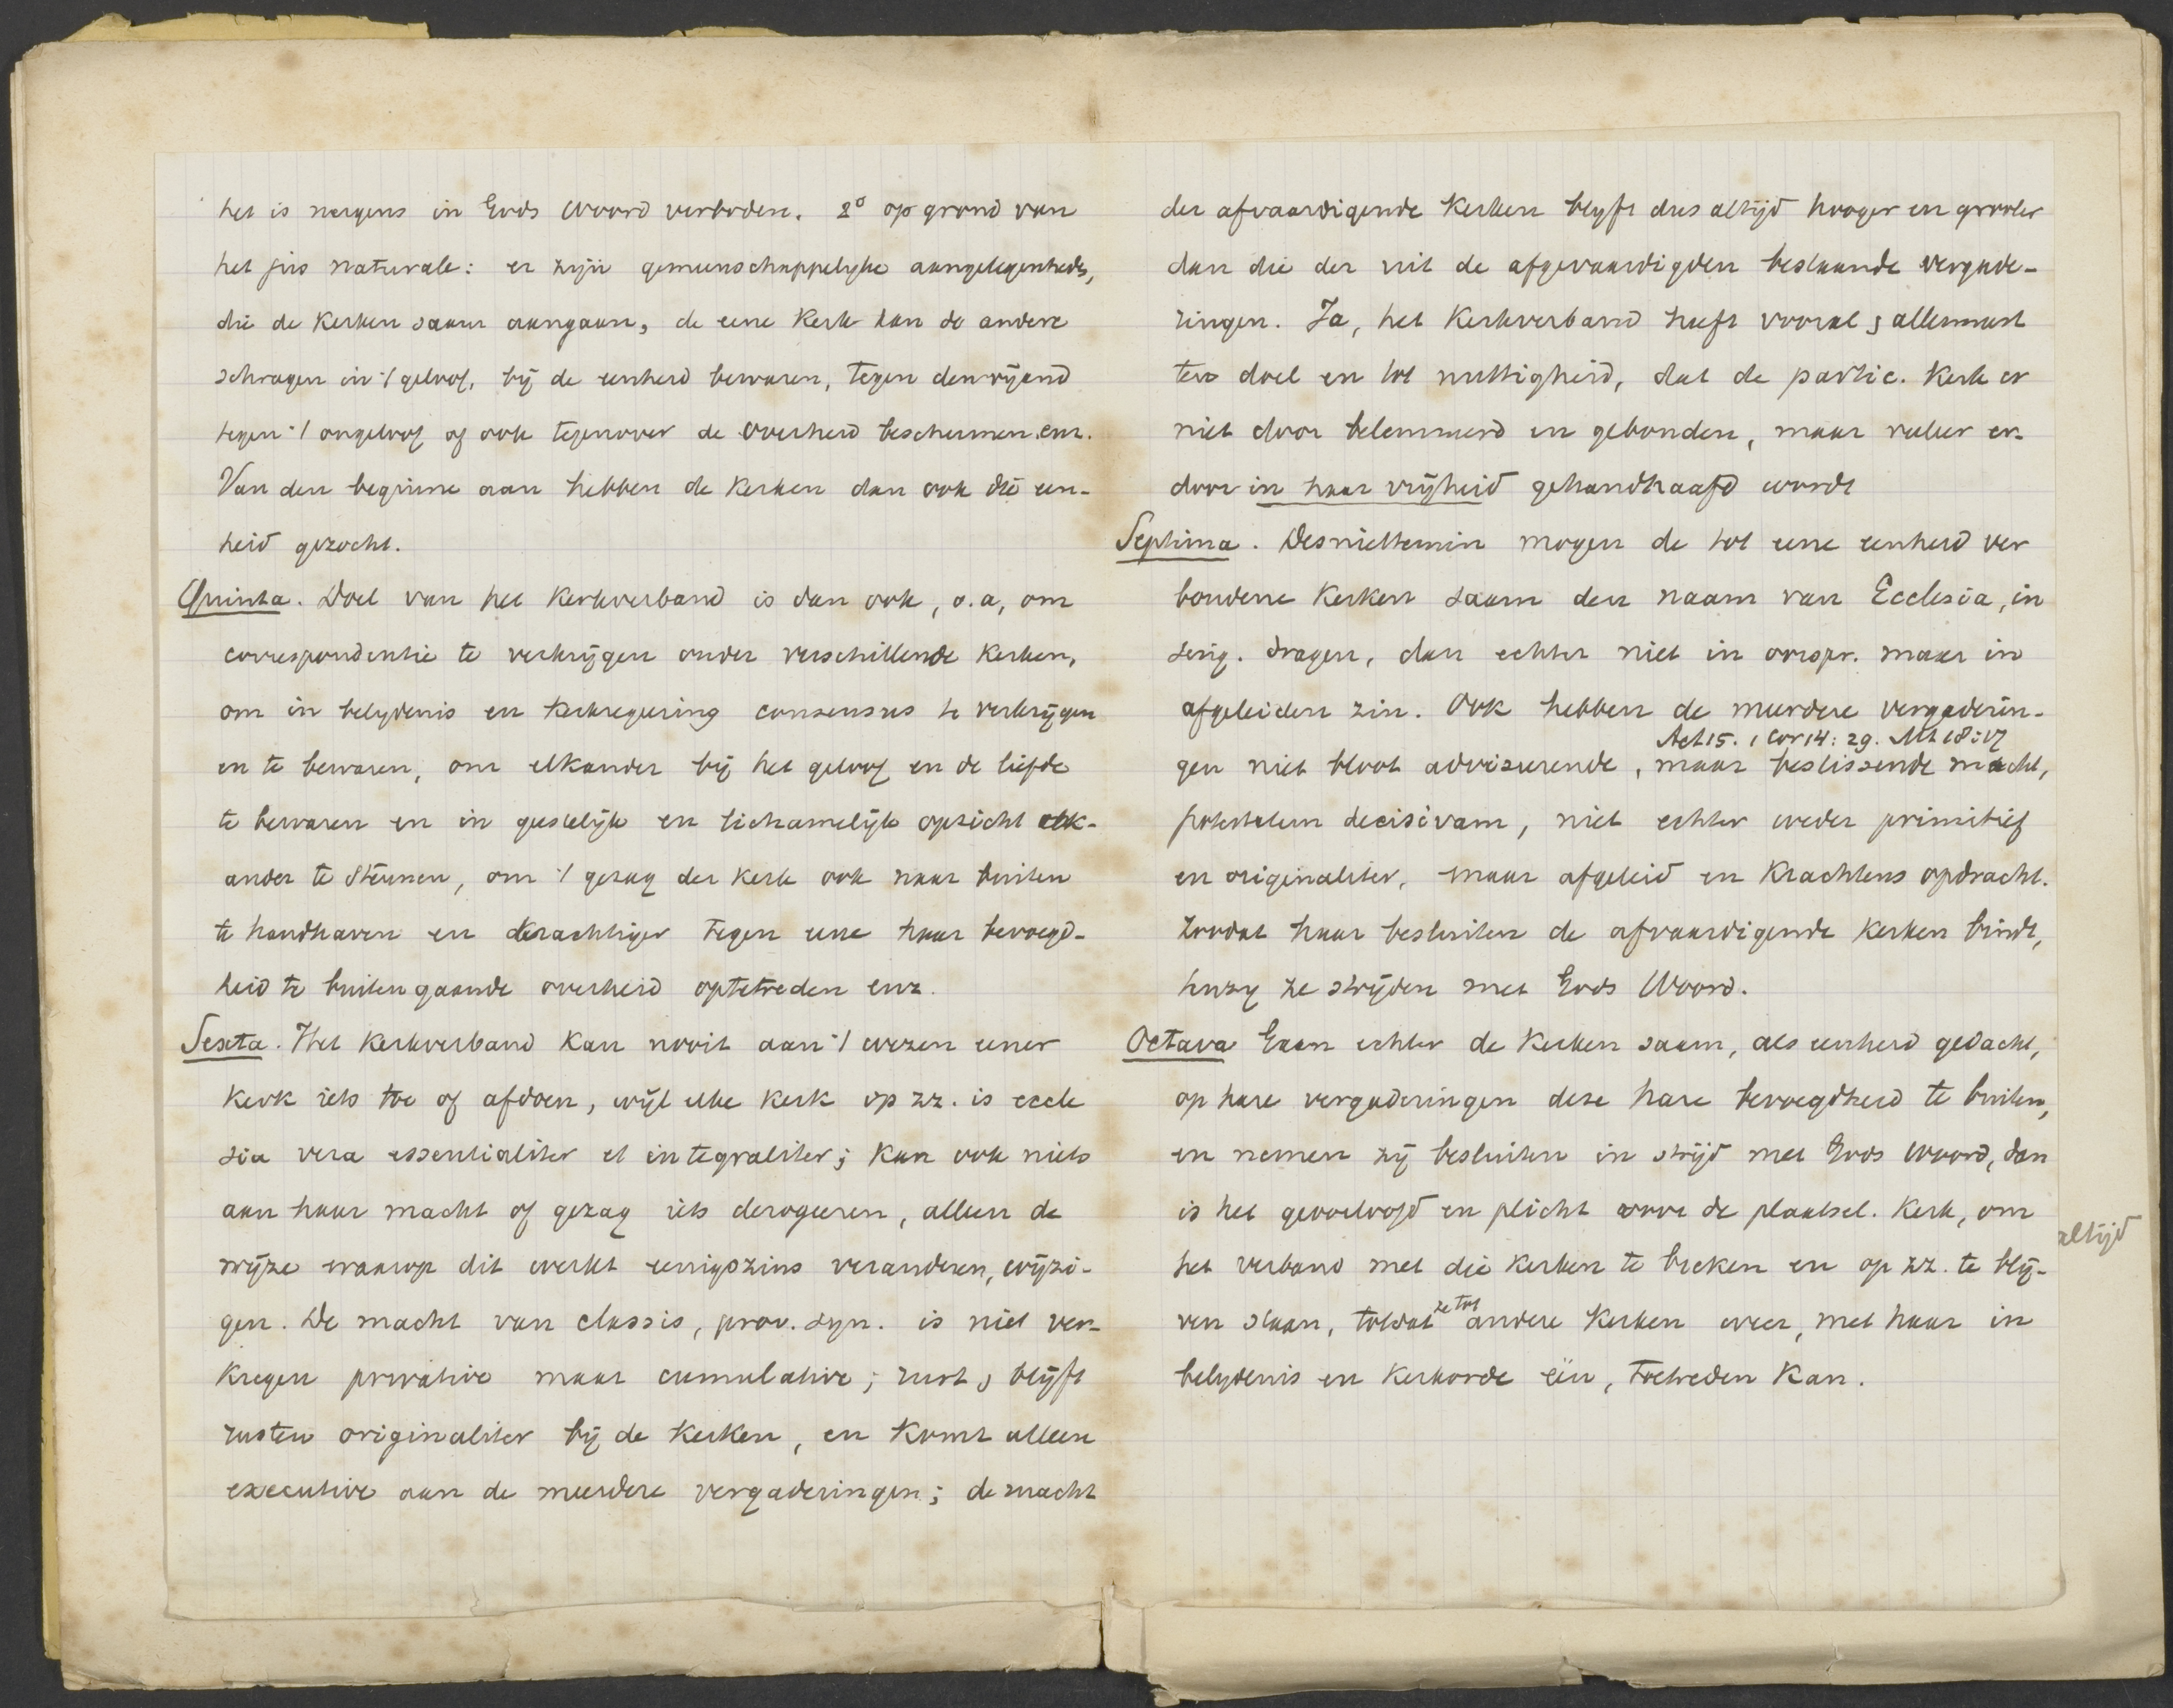 het is nergens in Gods Woord verboden. 2° op grond van
het jus naturale: er zijn gemeenschappelyke aangelegenheds,
die de Kerken saam aangaan, de eene Kerk kan de andere
schragen in 't geloof, bij de eenheid bewaren, tegen den vijand
tegen 't ongeloof of ook tegenover de overheid beschermen enz.
Van den beginne aan hebben de Kerken dan ook die een-
heid gezocht.
Quinta. Doel van het Kerkverband is dan ook, o.a, om
correspondentie te verkrijgen onder verschillende Kerken,
om in belydenis en Kerkregeering consensus te verkrijgen
en te bewaren, om elkander bij het geloof en de liefde
te bewaren en in geestelijk en lichamelijk opzicht elk-
ander te steunen, om 't gezag der Kerk ook naar buiten
te handhaven en krachtiger tegen eene haar bevoegd-
heid te buiten gaande overheid optetreden enz.
Sexta. Het Kerkverband Kan nooit aan 't wezen eener
Kerk iets toe of afdoen, wijl elke Kerk op zz. is eccle
sia vera essentialiter et integraliter; Kan ook niets
aan haar macht of gezag iets derogeeren, alleen de
wijze waarop dit werkt eenigszins veranderen, wijzi-
gen. De macht van classis, prov. syn. is niet ver-
kregen privative maar cumulative; rust & blijft
rusten originaliter bij de Kerken, en Komt alleen
executive aan de meerdere vergaderingen; de macht
der afvaardigende Kerken blyft dus altijd hooger en grooter
dan die der uit de afgevaardigden bestaande vergade-
ringen. Ja, het Kerkverband heeft vooral & allermeest
ten doel en tot nuttigheid, dat de partic. Kerk er
niet door belemmerd en gebonden, maar veeleer er-
door in haar vrijheid gehandhaafd wordt
Septima. Desniettemin mogen de tot eene eenheid ver
bondene Kerken saam den naam van Ecclesia, in
sing. dragen, dan echter niet in oorspr. maar in
afgeleiden zin. Ook hebben de meerdere vergaderin-
Act 15. 1 Cor 14: 29. Mt 18:17
gen niet bloot adviseerende, maar beslissende macht,
potestatem decisivam, niet echter weder primitief
en originaliter, maar afgeleid en Krachtens opdracht.
Zoodat haar besluiten de afvaardigende Kerken bindt,
tenzy ze strijden met Gods Woord.
Octava Gaan echter de Kerken saam, als eenheid gedacht,
op hare vergaderingen deze hare bevoegdheid te buiten,
en nemen zij besluiten in strijd met Gods Woord, dan
is het geoorloofd en plicht voor de plaatsel. Kerk, om
altijd
het verband met die Kerken te breken en op zz. te blij-
ven staan, totdat ze tot andere Kerken weer, met haar in
belydenis en Kerkorde één, toetreden Kan.